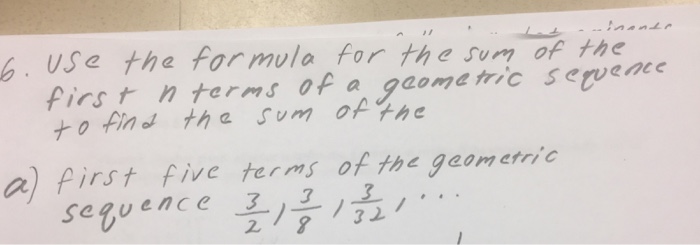 6. Use the formula for the sum of the
first n terms of a geometric sequence
to find the sum of the
a) first five terms of the geometric
sequence 3/2, 3/8, 3/32, ...